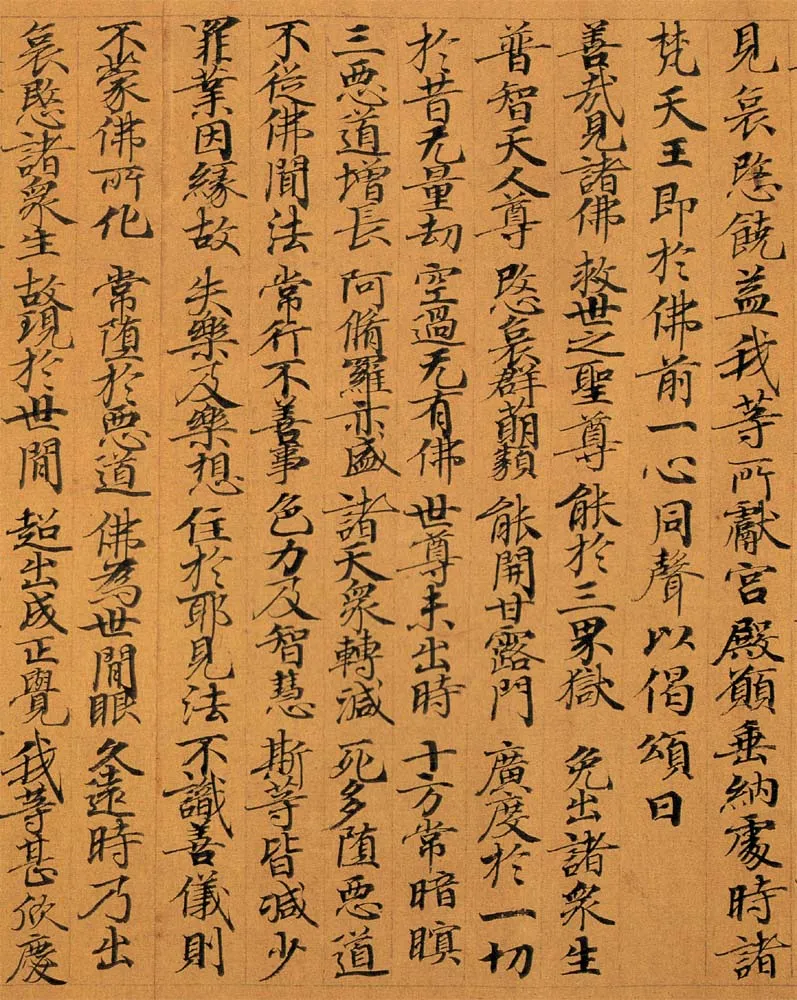 見哀愍饒益我等所獻宮殿願垂納處時諸
梵天王即於佛前一心同聲以偈頌曰
善哉見諸佛 救世之聖尊 能於三界獄 免出諸衆生
普智天人尊 愍哀群萌類 能開甘露門 廣度於一切
於昔无量劫 空過无有佛 世尊未出時 十方常暗瞑
三惡道增長 阿脩羅亦盛 諸天衆轉減 死多墮惡道
不從佛聞法 常行不善事 色力及智慧 斯等皆減少
罪業因緣故 失樂及樂想 住於耶見法 不識善儀則
不蒙佛所化 常墮於惡道 佛為世間眼 久遠時乃出
哀愍諸衆生 故現於世間 超出成正覺 我等甚欣慶